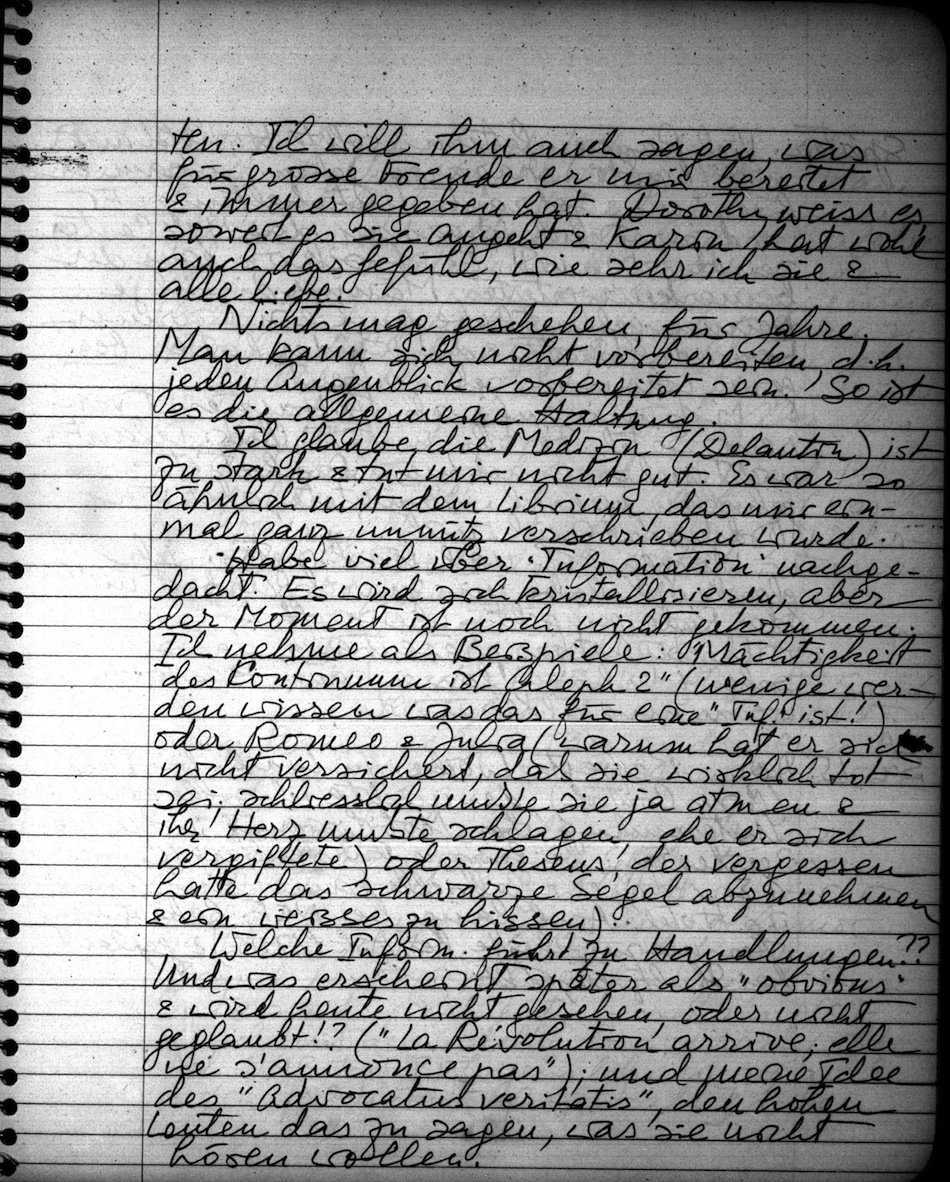 ten. Ich will ihm auch sagen, was
für grosse Freude er mir bereitet
& immer gegeben hat. Dorothy weiss es
soweit es sie angeht & Karin hat wohl
auch das Gefühl, wie sehr ich sie &
alle liebe.
Nichts mag geschehen, für Jahre.
Man kann sich nicht vorbereiten, d.h.
jeden Augenblick vorbereitet sein. So ist
es die allgemeine Haltung.
Ich glaube, die Medizin (Delantin) ist
zu stark & tut mir nicht gut. Es war so
ähnlich mit dem Librium, das mir ein-
mal ganz unnütz verschrieben wurde.
Habe viel über "Information" nachge-
dacht. Es wird sich kristallisieren, aber
der Moment ist noch nicht gekommen.
Ich nehme als Beispiele: "Mächtigkeit
des Continuum ist Aleph 2" (wenige wer-
den wissen was das für eine "Inf." ist!)
oder Romeo & Julia (warum hat er sich
nicht versichert, daß sie wirklich tot
sei; schliesslich mußte sie ja atmen &
ihr Herz mußte schlagen, ehe er sich
vergiftete) oder Theseus, der vergessen
hatte das schwarze Segel abzunehmen
& ein weisses zu hissen).
Welche Inform. führt zu Handlungen??
Und was erscheint später als "obvious"
& wird heute nicht gesehen, oder nicht
geglaubt!? ("La Révolution arrive; elle
ne s'annonce pas"); und meine Idee
des "Advocatus veritatis", den hohen
Leuten das zu sagen, was sie nicht
hören wollen.